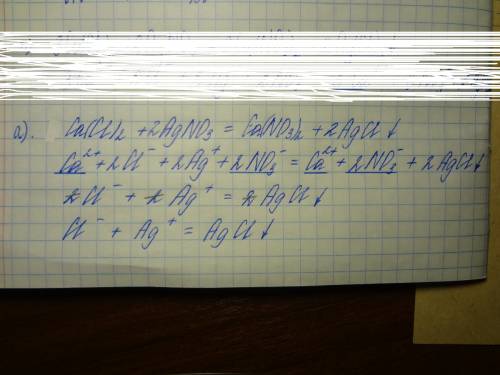 а). Ca(Cl)₂ + 2AgNO₃ = Ca(NO₃)₂ + 2AgCl↓
Ca²⁺ + 2Cl⁻ + 2Ag⁺ + 2NO₃⁻ = Ca²⁺ + 2NO₃⁻ + 2AgCl↓
2Cl⁻ + 2Ag⁺ = 2AgCl↓
Cl⁻ + Ag⁺ = AgCl↓